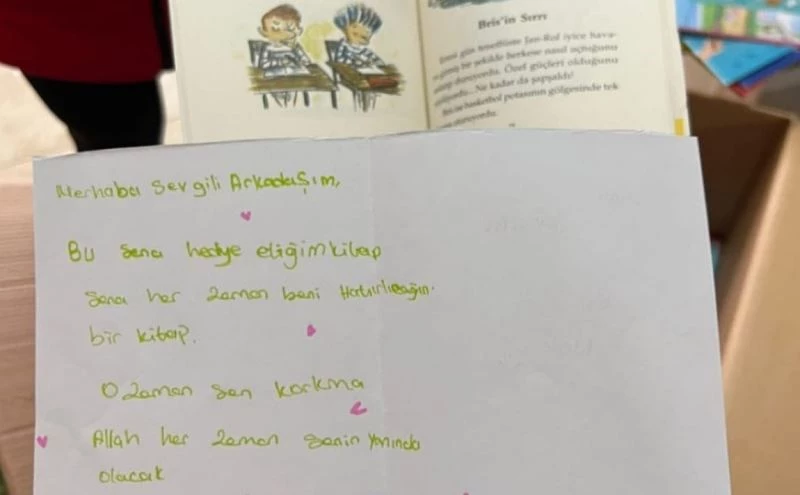 Bris'in Sırrı
nasıl uçtuğunu
Özel güçleri olduğunu
Ne kadar da şapşaldı!
basketbol potasının gölgesinde tek
Merhaba Sevgili Arkadaşım,
Bu sana hedye eliğim kitap
sana her zaman beni Hatırlıcağın.
bir kitap.
O zaman sen korkma
Allah her zaman senin yanında
olacak